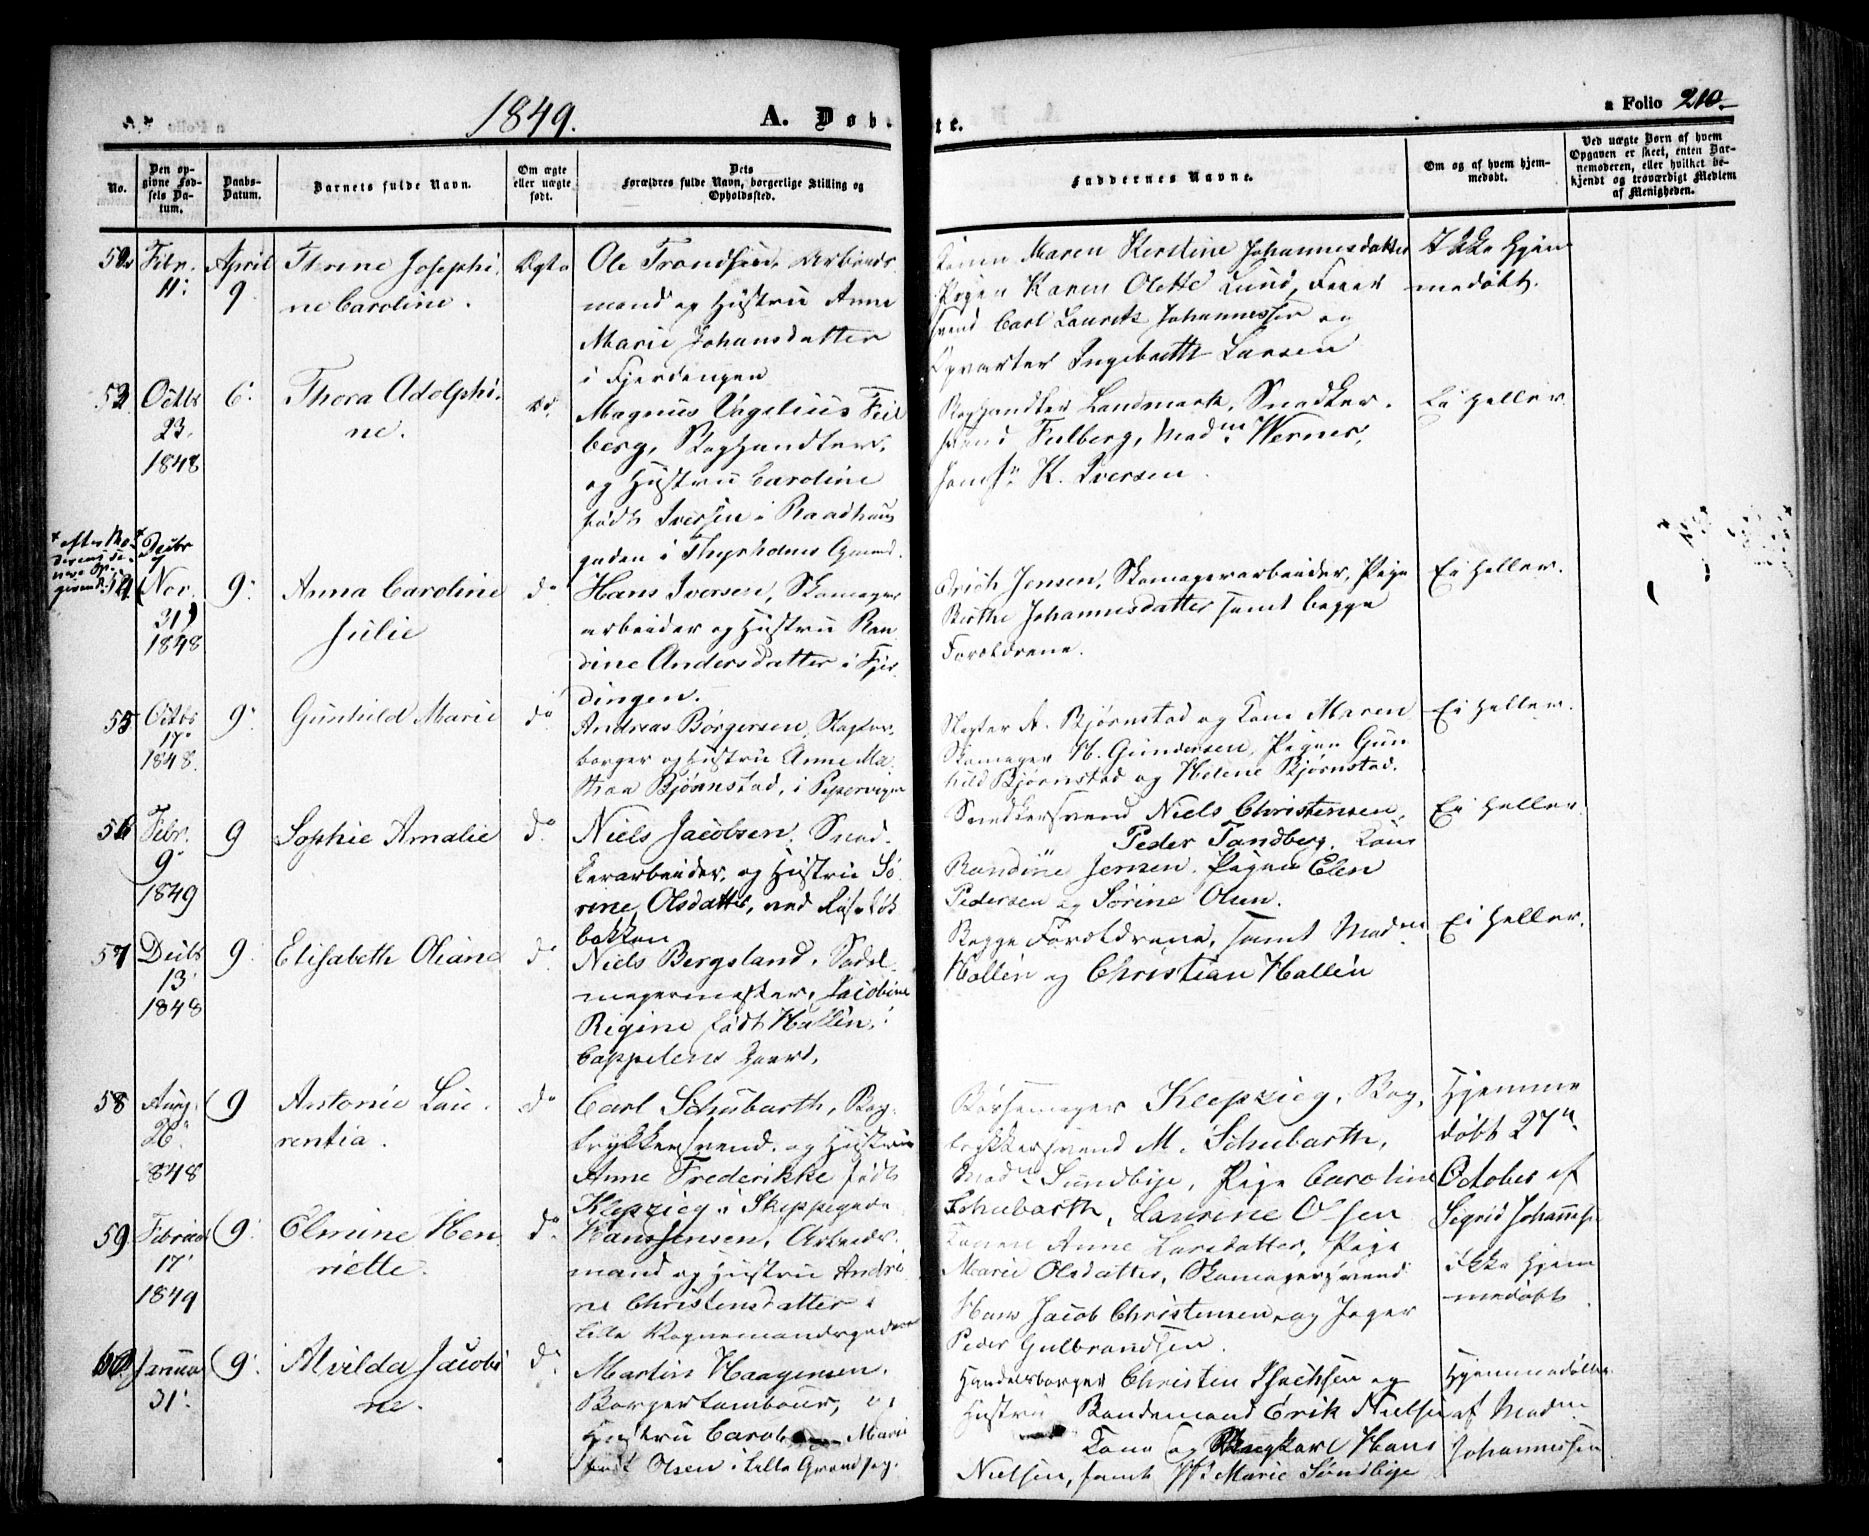 1849.
A. Døb-
te.
a Folio 210
No.
Den op-
givne Fød-
sels Da-
tum.
Daabs-
Datum.
Barnets fulde Navn.
Om ægte
eller uægte
født.
Dets
Forældres fulde Navn, borgerlige Stilling og
Opholdssted.
Faddernes Navne.
Om og af hvem hjem-
medøbt.
Ved uægte Børn af hvem
Opgaven er skeet, enten Bar-
nemoderen, eller hvilket be-
kjendt og troværdigt Medlem
af Menigheden.
52
Febr.
11.
April
9
Thrine Josephi-
ne Caroline.
Ægte
Ole Trondsen, Arbeids-
mand og Hustru Anne
Marie Johansdatter
i Fjerdingen
Konen Maren Kerstine Johannesdatter
Pigen Karen Olette Lund, Feier
svend Carl Lauritz Johannessen og
Opvarter Ingebreth Larsen
Ikke hjem
medøbt.
53
Octbr
23.
1848
6.
Thora Adolphi-
ne.
do.
Magnus Vigelius Feil
berg, Boghandler,
og Hustru Caroline
født Iversen i Raadhuus
gaden i Thyrholms Gaard.
Boghandler Landmark, Snedker-
svend Feilberg, Madm Werner,
Jomfr K. Iversen.
Ei heller.
* efter Mo-
derens se-
nere Op-
givende
54
* Decbr
(Nov.
31)
1848
9.
Anna Caroline
Julie
do
Hans Iversen, Skomager
arbeider og Hustru Ran
dine Andersdatter i Fjer
dingen.
Erich Jensen, Skomagerarbeider, Pige
Berthe Johannesdatter samt begge
Forældrene.
Ei heller.
55
Octbr
17.
1848.
9.
Gunhild Marie
do
Andreas Børgersen, Slagter-
borger og Hustru Anne Ma
thea Bjørnstad, i Pipervigen
Slagter A. Bjørnstad og Kone Maren
Skomager H. Gundersen, Pigen Gun
hild Bjørnstad og Helene Bjørnstad.
Ei heller.
56
Febr.
9.
1849
9
Sophie Amalie
do
Niels Jacobsen, Sned-
kerarbeider, og Hustru Sø-
rine Olsdatter, ved Ruseløk
bakken
Snedkersvend Niels Christensen,
Peder Tandberg, Kone
Randine Jensen, Pigen Elen
Pedersen og Sørine Olsen.
Ei heller.
57
Decbr
13
1848
9.
Elisabeth Oliane
do
Niels Bergsland, Sadel-
magermester, Jacobine
Rigine født Hallen, i
Cappelens Gaard.
Begge Forældrene, samt Madm
Hallen og Christian Hallen
Ei heller.
58
Aug.
26.
1848
9
Antonie Lau-
rentia.
do
Carl Schubarth, Bog-
trykkersvend, og Hustru
Anne Frederikke født
Klepzieg i Skippergaden
Børsemager Klepzieg, Bog-
trykkersvend M. Schubarth,
Madm Sundbye, Pige Caroline
Schubarth, Laurine Olsen
Hjemme
døbt 27
October af
Sigrid Johannesen
59
Februar
17.
1849
9.
Elmine Hen
riette.
do
Hans Jensen, Arbeids-
mand og Hustru Andri
ne Christensdatter i
Lille Vognmandsgaden
Konen Anne Larsdatter, Pige
Marie Olsdatter, Skomagersvend
Hans Jacob Christensen og Jeger
Peder Gulbrandsen.
ikke hjem
medøbt
60
Januar
31.
9.
Alvilda Jacobi
ne.
do
Martin Haagensen,
Borgertambour, og
Hustru Marie
født Olsen i Lille Grændseg.
Handelsborger Christen Isachsen og
Hustru Bondemand Erik Nielsen
Kone og Karl Hans
Nielsen, samt Marie Sundbye
Hjemmedøbt
af Madm
Johannessen